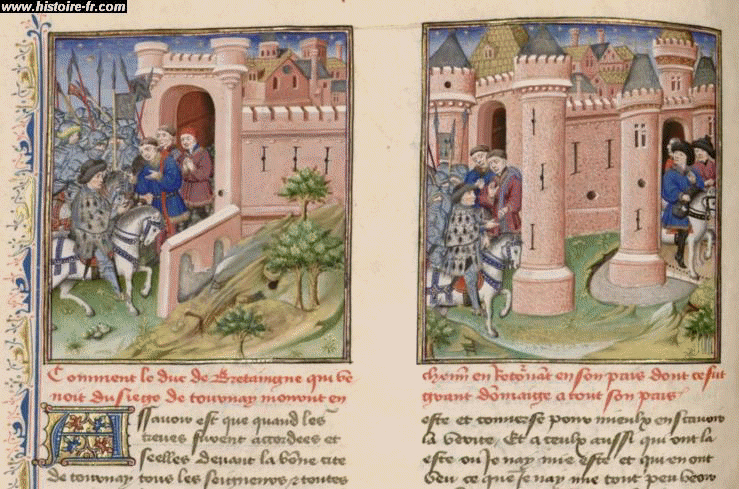 www.histoire-fr.com
Comment le duc de Bretaingne qui ve
noit du siege de tournay mourut en
Assauoir est que quand les
trieues furent accordees et
seellees deuant la bonne cite
de tournay tous les seigneurs et toutes
chemin en retournant en son pais dont ce fut
grant dommaige a tout son pais
este et conuerse pour mieulx en scauoir
la verite. Et a ceulx aussi qui ont la
este ou Je nay mie este et qui en ont
veu ce que Je nay mie tout peu veoir